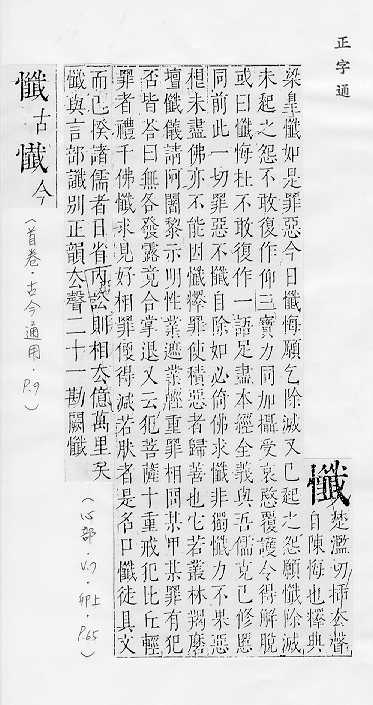 正字通
懺
楚濫切攙去聲
自陳悔也釋典
梁皇懺如是罪惡今日懺悔願乞除滅又已起之怨願懺除滅
未起之怨不敢復作仰三寶力同加攝受哀愍覆護令得解脫
或曰懺悔杜不敢復作一語足盡本經全義與吾儒克己修慝
同前此一切罪惡不懺自除如必倚佛求懺非獨懺力不果惡
根未盡佛亦不能因懺釋罪使積惡者歸善也它若叢林羯磨
壇懺儀請阿闍黎示明性業遮業輕重罪相問某甲某罪有犯
否皆荅曰無各發露竟合掌退又云犯菩薩十重戒犯比丘輕
罪者禮千佛懺求見好相罪僾得減若肰者是名口懺徒具文
而已揆諸儒者日省內訟則相去億萬里矣
懺與言部讖別正韻去聲二十一勘闕懺
(心部.V.7.卯上.P.65)
懺古懴今
(首卷.古今通用.P.9)